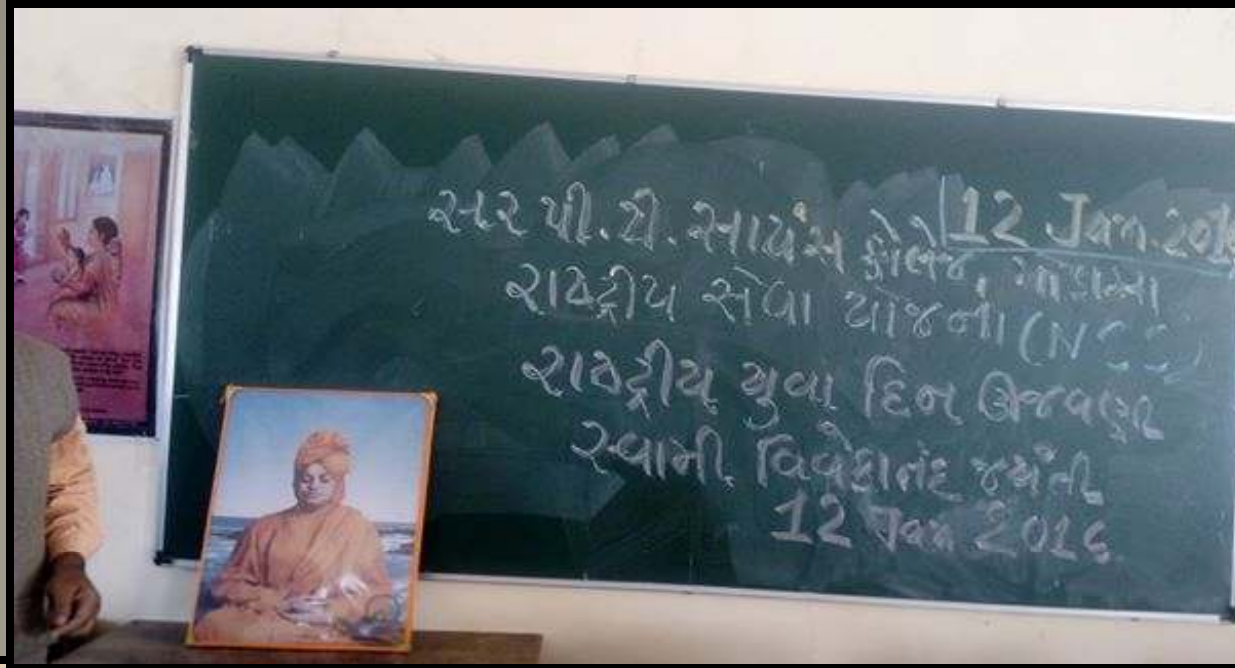 12 Jan. 2016
સર પી.ટી. સાયંસ કોલેજ, મોડાસા
રાષ્ટ્રીય સેવા યોજના (NSS)
રાષ્ટ્રીય યુવા દિન ઊજવણી
સ્વામી વિવેકાનંદ જયંતી
12 Jan 2016